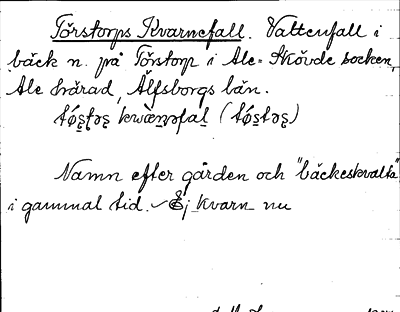 Törstorps Kvarnefall. Vattenfall i
bäck n. på Törstorp i Ale-Skövde socken,
Ale härad, Älfsborgs län.
Namn efter gården och "bäckeskvalta"
i gammal tid. Ej kvarn nu